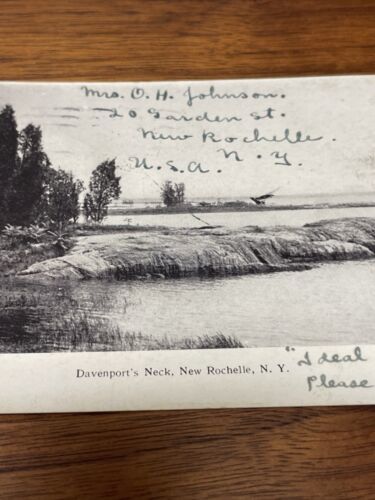 Mrs. O. H. Johnson.
20 Garden st.
New Rochelle.
N. Y.
U. S. A.
Davenport's Neck, New Rochelle, N. Y.
"Ideal
Please